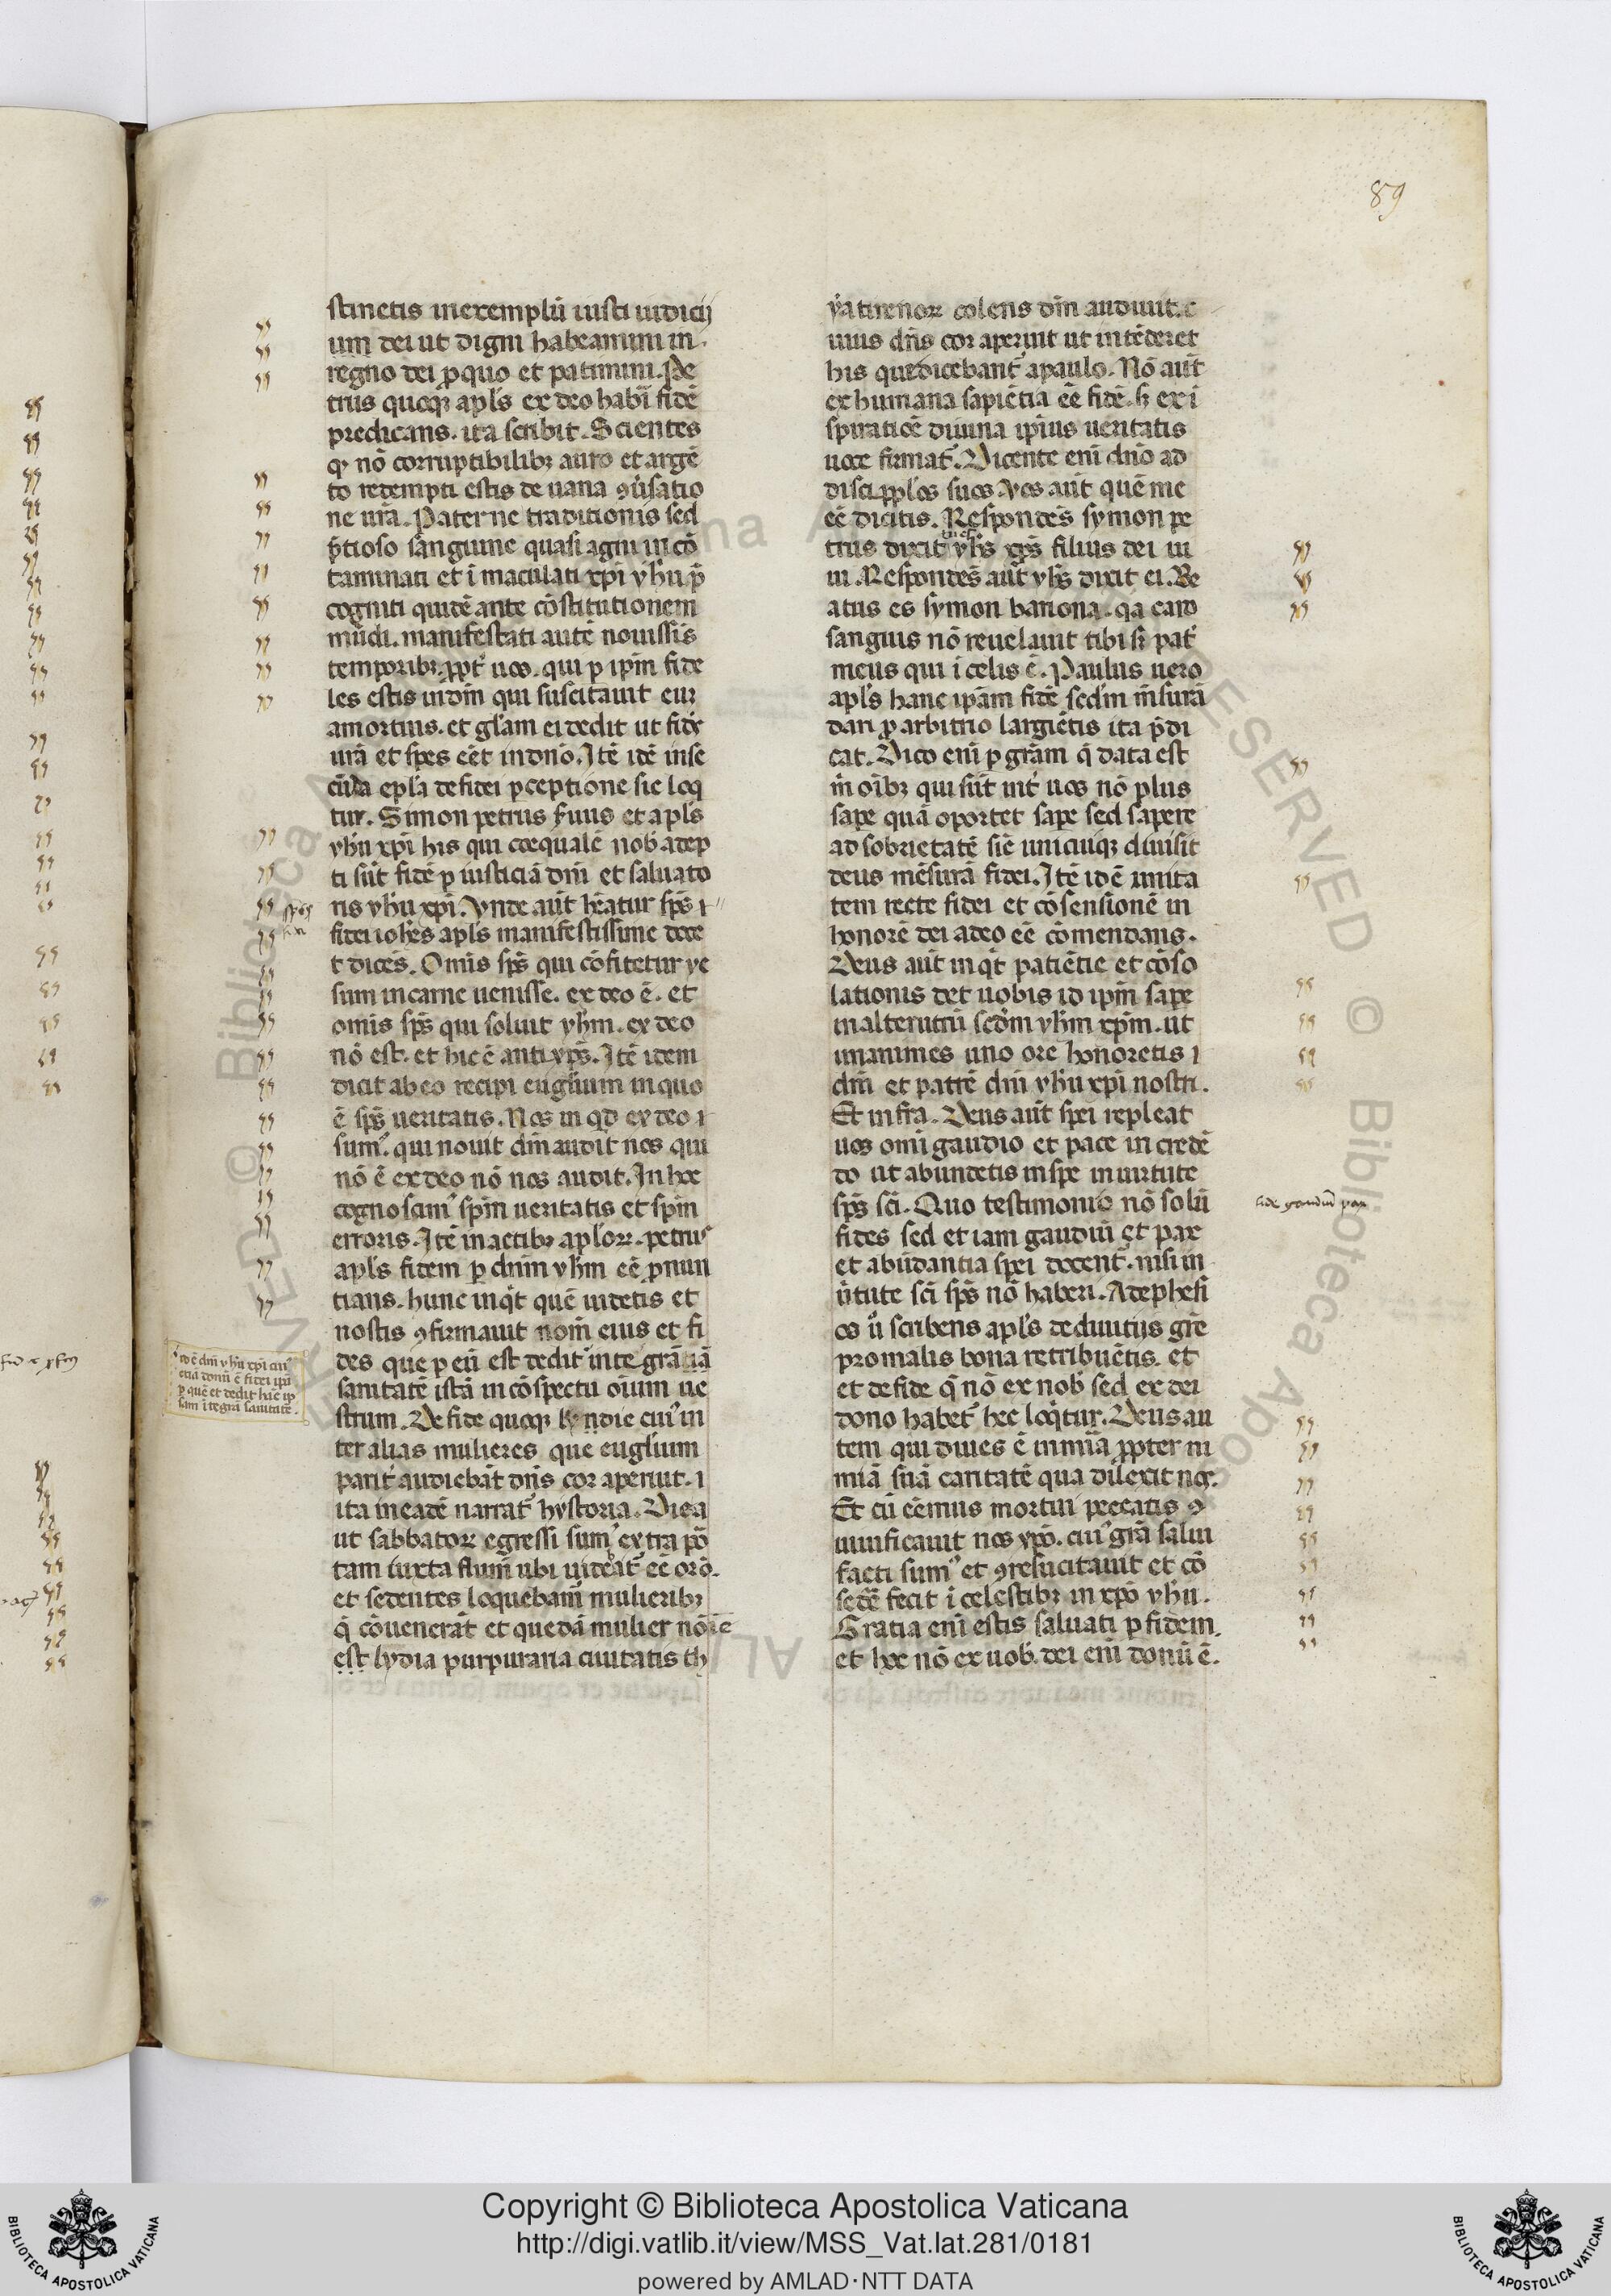 89
stinetis in exemplū iusti iudicij
um dei ut digni habeamini in
regno dei ꝓ quo et patimini. Pe
trus quoqꝫ apl̄s ex deo habi fidē
predicans. ita scribit. Scientes
qꝫ nō corruptibilibꝫ auro et argē
to redempti estis de uana ꝯuersatio
ne ur̄a. Paterne traditionis sed
p̄tioso sanguine quasi agni in cō
taminati et i maculati xp̄i yhū p̄
cogniti quidē ante cōstitutionem
mūdi. manifestati autē nouissis
temporibꝫ ꝓpt̄ uos. qui ꝑ ip̄m fide
les estis in dm̄ qui suscitauit eū
a mortuis. et gl̄am ei dedit ut fides
ur̄a et spes eēt in dn̄o. Itē idē in se
cūda epl̄a de fidei ꝑceptione sic loq
tur. Simon petrus s̄uus et apl̄s
yhū xp̄i his qui coequalē nob̄ adep
ti sūt fidē ꝑ iusticiā dn̄i et saluato
ris yhū xp̄i. Vnde aūt hēatur sp̄s
fidei ioh̄es apl̄s manifestissime doce
t dicēs. Om̄is sp̄s qui cōfitetur ye
sum in carne uenisse. ex deo ē. et
om̄is sp̄s qui soluit yhm̄. ex deo
nō est. et hic ē anti xp̄s. Itē idem
dicit ab eo recipi eugl̄ium in quo
ē sp̄s ueritatis. Nos in qd ex deo
sumꝰ. qui nouit dm̄ audit nos qui
nō ē ex deo nō nos audit. In hoc
cognoscimꝰ sp̄m ueritatis et sp̄m
erroris. Itē in actibꝫ apl̄oꝝ. petrus
apl̄s fidem ꝑ dn̄m yhm̄ eē ꝓnun
tians. hunc inqt quē uidetis et
nostis ꝯfirmauit nom̄ eius et fi
des que ꝑ eū est dedit integrā
sanitatē istā in cōspectu oīum ue
strum. De fide quoqꝫ lyndie cuiꝰ in
ter alias mulieres que eugl̄ium
parit̄ audiebāt dn̄s cor aperuit.
ita in eadē narrat̄ hystoria. Die a
ut sabbatoꝝ egressi sumꝰ extra poꝛ
tam iuxta flum̄ ubi uidebat̄ eē orō.
et sedentes loquebam̄ mulieribꝫ
q̄ cōuenerāt et quedā mulier nōīe
est lydia purpuraria ciuitatis th
yatirenoꝝ colens dm̄ audiuit. c
uius dn̄s cor aperuit ut intēderet
his que dicebant̄ a paulo. Nō aūt
ex humana sapiētia eē fidē. s; ex i
spiratiōe diuina ipius ueritatis
uoce firmat̄. Dicente eni dn̄o ad
discipplos suos. Vos aūt quē me
eē dicitis. Respondēs symon pe
trus dixit tu es yhs xp̄s filius dei ui
ui. Respondēs aūt yhs dixit ei. Be
atus es symon bariona. qa caro
sanguis nō reuelauit tibi s; pat̄
meus qui i celis ē. Paulus uero
apl̄s hanc ipām fidē sedm m̄surā
dari ꝓ arbitrio largiētis ita p̄di
cat. Dico eni ꝑ grām q̄ data est
m̄ oībꝫ qui sūt int̄ uos nō plus
sape quā oportet sape sed sapere
ad sobrietatē sic unicuiqꝫ diuisit
deus mēsurā fidei. Itē idē unita
tem recte fidei et cōsensionē in
honorē dei a deo eē cōmendans.
Deus aūt inqt patiētie et cōso
lationis det uobis id ipm̄ sape
in alterutrū sedm yhm̄ xpm̄. ut
unanimes uno ore honoretis
dm̄ et patrē dn̄i yhū xp̄i nostri.
Et infra. Deus aūt spei repleat
uos om̄i gaudio et pace in credē
do ut abundetis in spe in uirtute
sp̄s sc̄i. Quo testimonio nō solū
fides sed et iam gaudiū et pax
et abūdantia spei docent̄. nisi in
ūtute sc̄i sp̄s nō haberi. Ad ephesi
os ū scribens apl̄s de diuitijs gr̄e
pro malis bona retribuētis. et
et de fide q̄ nō ex nob̄ sed ex dei
dono habet̄ hec loqtur. Deus au
tem qui diues ē in mīa ꝓpter ni
miā suā caritatē qua dilexit nos.
Et cū eēmus mortui peccatis ꝯ
uiuificauit nos xpō. cuiꝰ grā salui
facti sumꝰ et ꝯresucitauit et cō
sedē fecit i celestibꝫ in xpō yhū.
Gratia eni estis saluati ꝑ fidem.
et hoc nō ex uob̄. dei eni donū ē.
id ē dn̄i yhū xp̄i cuiꝰ
donū ē fidei ipū
ꝑ quē et dedit hāc ip
sam i tegrā sanitatē.
Copyright © Biblioteca Apostolica Vaticana
http://digi.vatlib.it/view/MSS_Vat.lat.281/0181
powered by AMLAD·NTT DATA
BIBLIOTECA APOSTOLICA VATICANA
BIBLIOTECA APOSTOLICA VATICANA